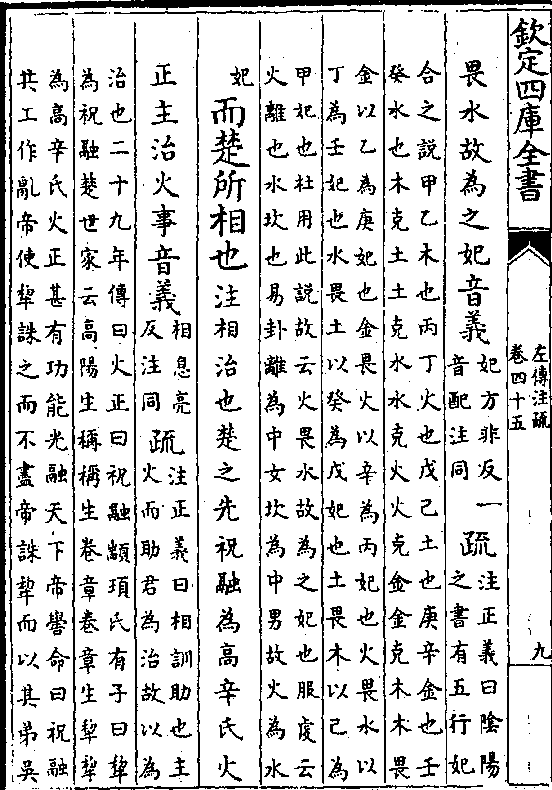 欽定四庫全書
左傳注疏
卷四十五
九
畏水故為之妃音義妃方非反一
音配注同疏注正義曰陰陽
之書有五行妃
合之說甲乙木也丙丁火也戊己土也庚辛金也壬
癸水也木克土土克水水克火火克金金克木木畏
金以乙為庚妃也金畏火以辛為丙妃也火畏水以
丁為壬妃也水畏土以癸為戊妃也土畏木以己為
甲妃也杜用此說故云火畏水故為之妃也服虔云
火離也水坎也易卦離為中女坎為中男故火為水
妃而楚所相也注相治也楚之先祝融為高辛氏火
正主治火事音義相息亮
反注同疏注正義曰相訓助也主
火而助君為治故以為
治也二十九年傳曰火正曰祝融顓頊氏有子曰犂
為祝融楚世家云高陽生稱稱生卷章卷章生犂犂
為高辛氏火正甚有功能光融天下帝嚳命曰祝融
共工作亂帝使犂誅之而不盡帝誅犂而以其弟吳